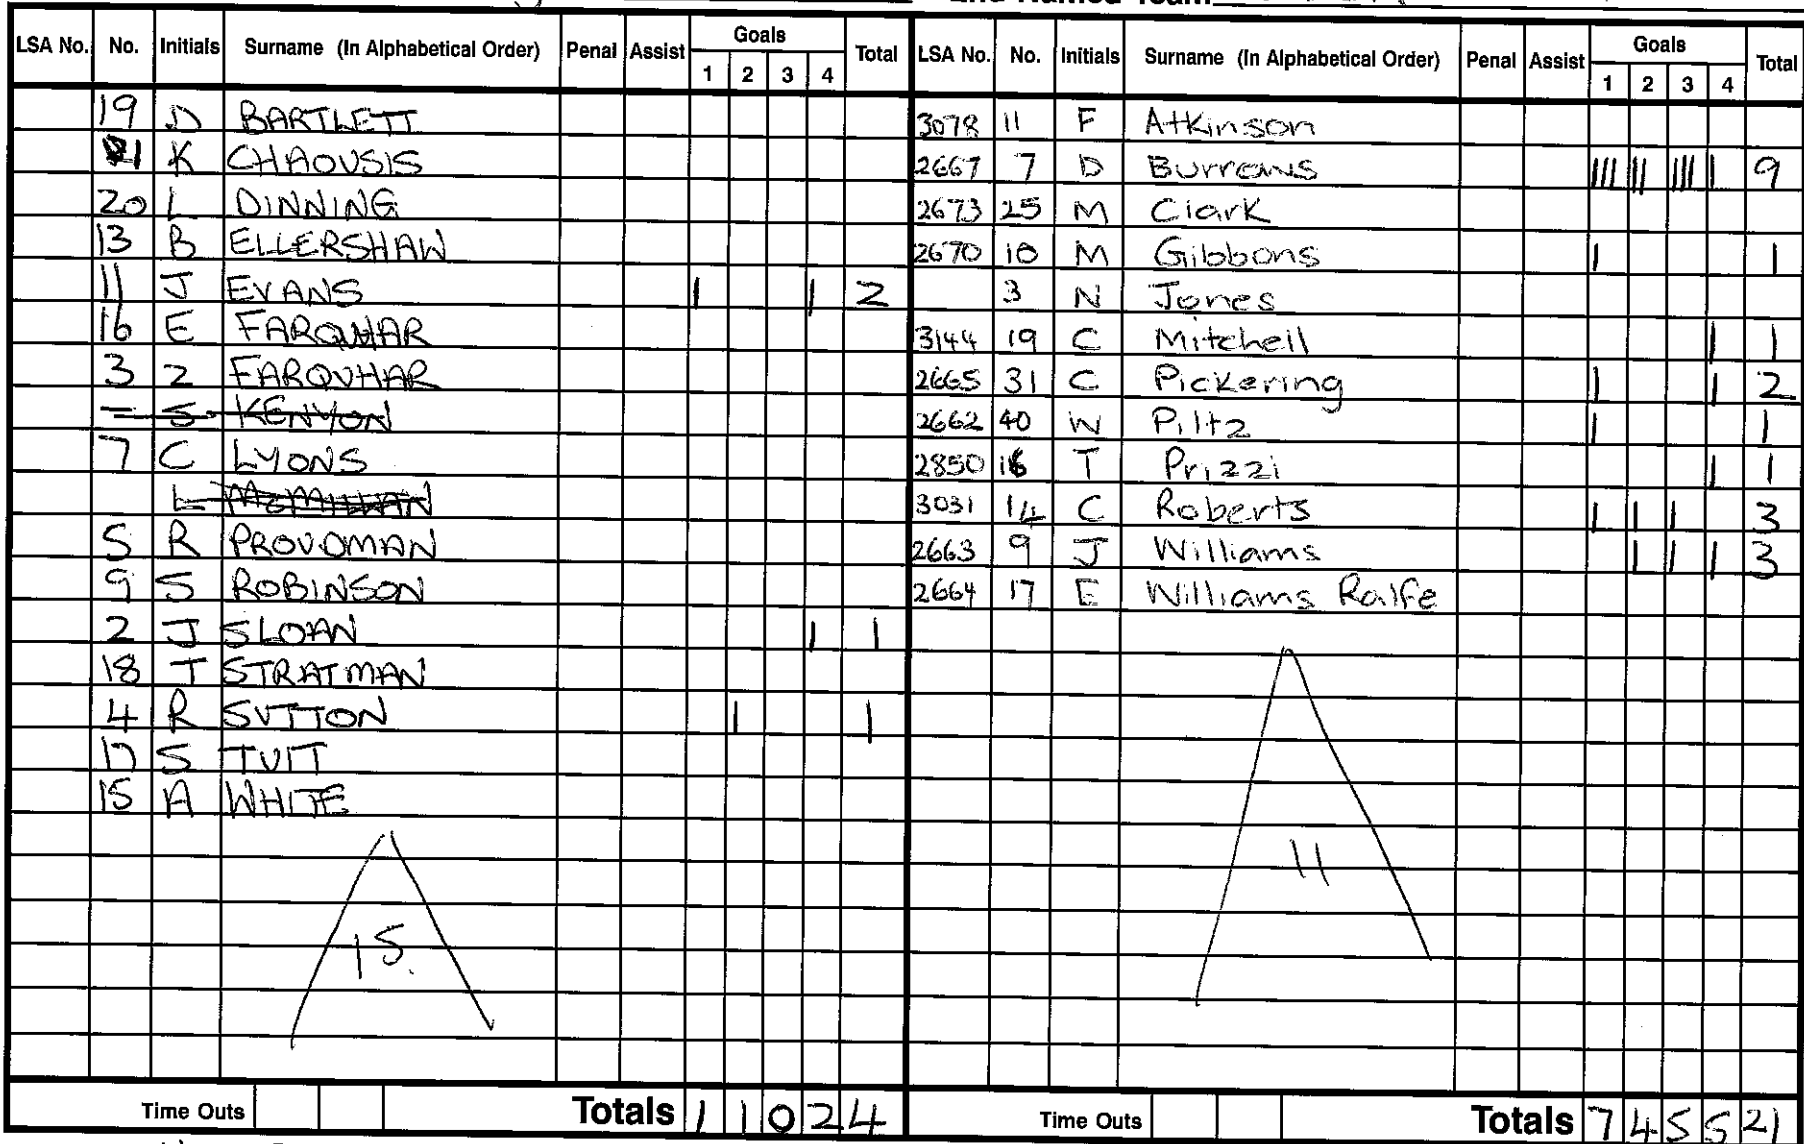 2nd Named Team
LSA No. No. Initials Surname (In Alphabetical Order) Penal Assist Goals 1 2 3 4 Total
19 D BARTLETT
K CHAOUSIS
20 L DINNING
13 B ELLERSHAW
11 J EVANS | | 2
16 E FARQUHAR
3 Z FARQUHAR
— S KENYON
7 C LYONS
L McMILLAN
5 R PROVDMAN
9 S ROBINSON
2 J SLOAN | 1
18 T STRATMAN
4 R SUTTON | 1
17 S TUIT
15 A WHITE
15.
Time Outs Totals 1 1 0 2 4
LSA No. No. Initials Surname (In Alphabetical Order) Penal Assist Goals 1 2 3 4 Total
3078 11 F Atkinson
2667 7 D Burrows |||| || |||| | 9
2673 25 M Clark
2670 10 M Gibbons | 1
3 N Jones
3144 19 C Mitchell | 1
2665 31 C Pickering | | 2
2662 40 W Piltz | 1
2850 16 T Prizzi | 1
3031 14 C Roberts | | | 3
2663 9 J Williams | | | 3
2664 17 E Williams Ralfe
11
Time Outs Totals 7 4 5 5 21